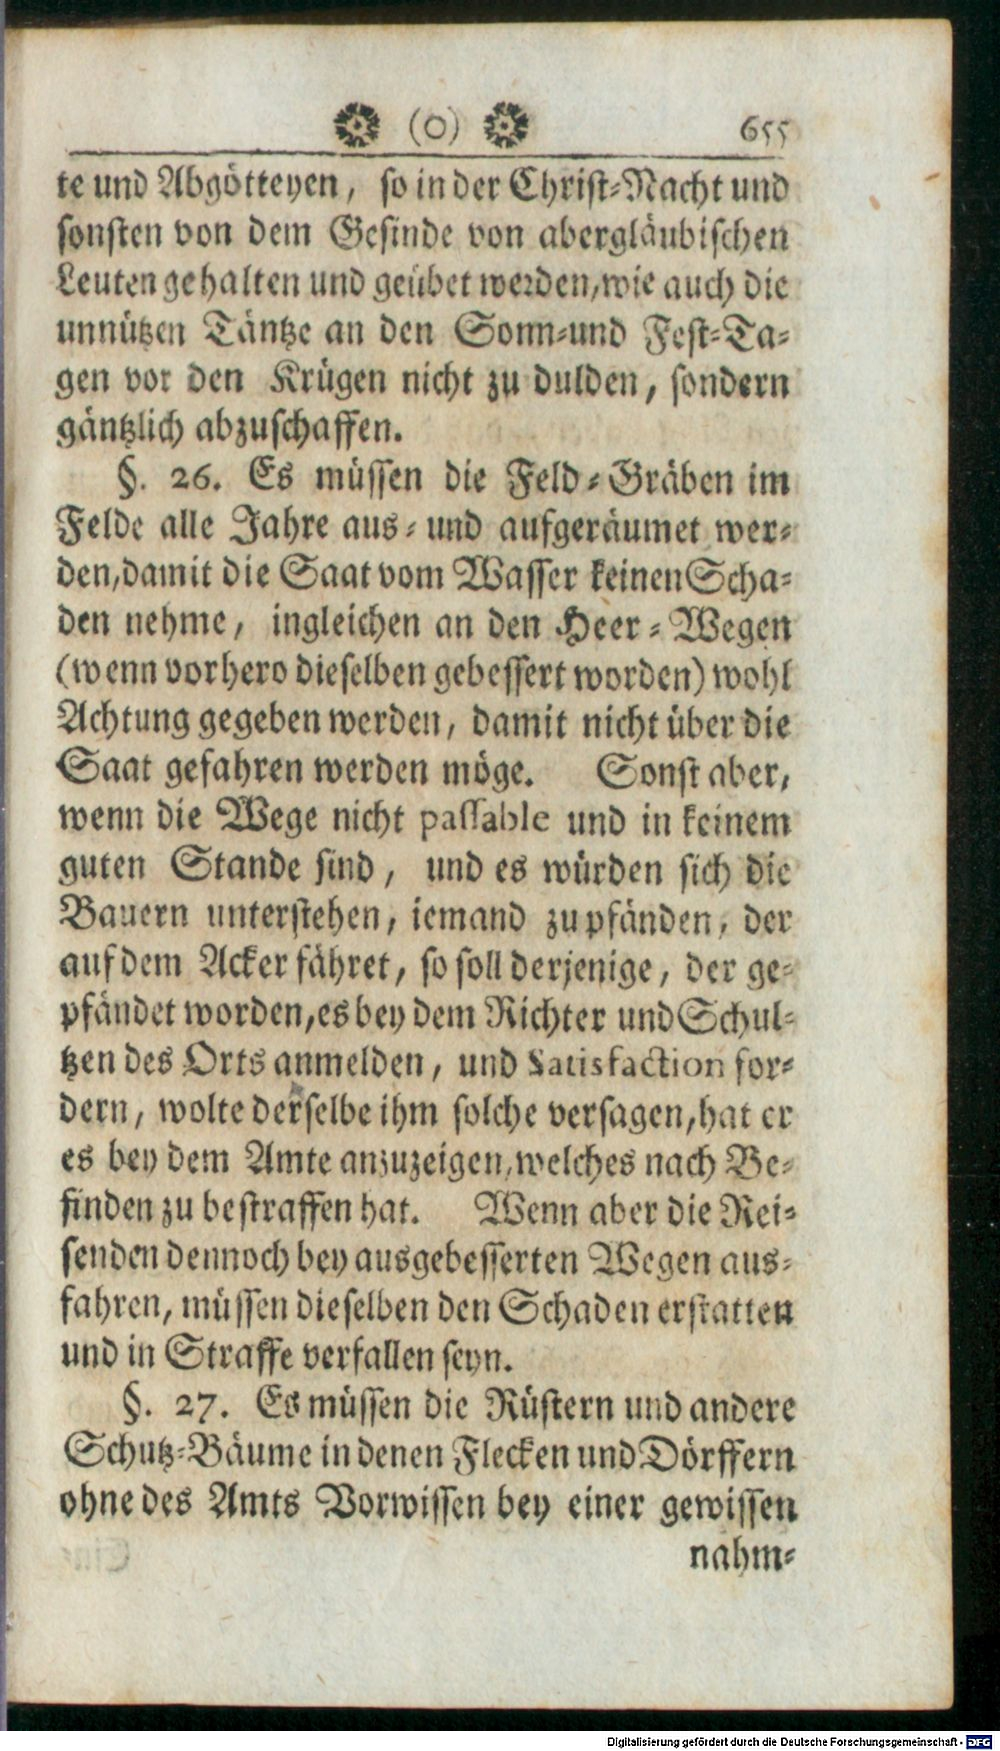 (0) 655
te und Abgötteyen, so in der Christ-Nacht und
sonsten von dem Gesinde von abergläubischen
Leuten gehalten und geübet werden, wie auch die
unnützen Täntze an den Sonn- und Fest-Ta-
gen vor den Krügen nicht zu dulden, sondern
gäntzlich abzuschaffen.
§. 26. Es müssen die Feld-Gräben im
Felde alle Jahre aus- und aufgeräumet wer-
den, damit die Saat vom Wasser keinen Scha-
den nehme, ingleichen an den Heer-Wegen
(wenn vorhero dieselben gebessert worden) wohl
Achtung gegeben werden, damit nicht über die
Saat gefahren werden möge. Sonst aber,
wenn die Wege nicht passable und in keinem
guten Stande sind, und es würden sich die
Bauern unterstehen, iemand zu pfänden, der
auf dem Acker fähret, so soll derjenige, der ge-
pfändet worden, es bey dem Richter und Schul-
tzen des Orts anmelden, und Satisfaction for-
dern, wolte derselbe ihm solche versagen, hat er
es bey dem Amte anzuzeigen, welches nach Be-
finden zu bestraffen hat. Wenn aber die Rei-
senden dennoch bey ausgebesserten Wegen aus-
fahren, müssen dieselben den Schaden erstatten
und in Straffe verfallen seyn.
§. 27. Es müssen die Rüstern und andere
Schutz-Bäume in denen Flecken und Dörffern
ohne des Amts Vorwissen bey einer gewissen
nahm-
Digitalisierung gefördert durch die Deutsche Forschungsgemeinschaft - DFG